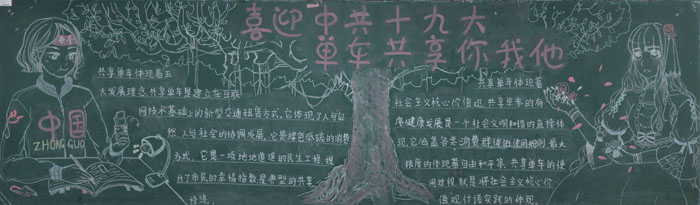 喜迎中共十九大
单车共享你我他
中国
ZHONG GUO
共享单车体现着五
大发展理念,共享单车是建立在互联
网技术基础上的新型交通租赁方式,它体现了人与自
然、人与社会的协调发展。它是绿色低碳的消费
方式。它是一项地地道道的民生工程,提
升了市民的幸福指数是典型的共享
经济。
共享单车体现着
社会主义核心价值观。共享单车的有
序健康发展是一个社会文明和谐的直接体
现,它涵盖各类消费群体
最大
限度的体现着自由和平等,共享单车的使
用过程,就是将社会主义核心价
值观付诸实践的体现。